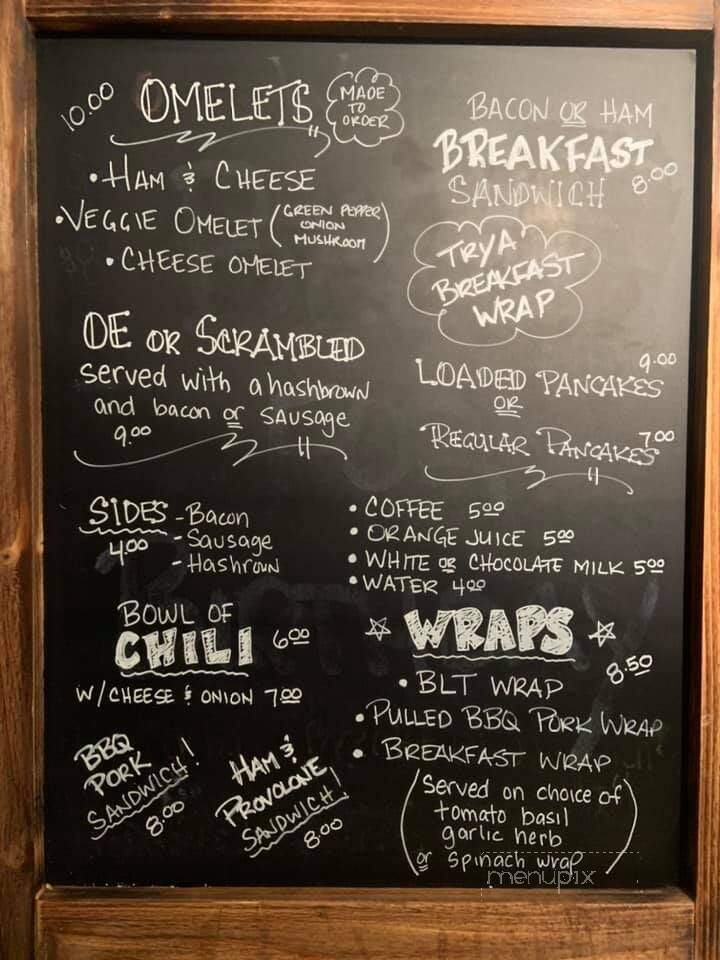 10.00 OMELETS
MADE
TO
ORDER
• HAM & CHEESE
• VEGGIE OMELET (GREEN PEPPER
ONION
MUSHROOM)
• CHEESE OMELET
BACON OR HAM
BREAKFAST
SANDWICH 8.00
TRY A
BREAKFAST
WRAP
OE OR SCRAMBLED
served with a hashbrown
and bacon or sausage
9.00
9.00
LOADED PANCAKES
OR
REGULAR PANCAKES 7.00
SIDES - Bacon
4.00 - Sausage
- Hashrown
• COFFEE 5.00
• ORANGE JUICE 5.00
• WHITE OR CHOCOLATE MILK 5.00
• WATER 4.00
BOWL OF
CHILI 6.00
W/ CHEESE & ONION 7.00
WRAPS
8.50
• BLT WRAP
• PULLED BBQ PORK WRAP
• BREAKFAST WRAP
(Served on choice of
tomato basil
garlic herb
or spinach wrap)
BBQ
PORK
SANDWICH!
8.00
HAM &
PROVOLONE
SANDWICH!
8.00
menupix